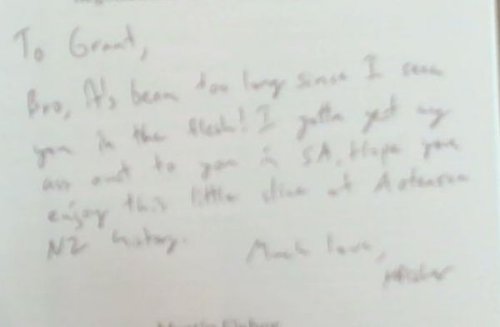 To Grant,
Bro, It's been too long since I seen
you in the flesh! I gotta get my
ass out to you in SA. Hope you
enjoy this little slice of Aotearoa
NZ history.
Much love,